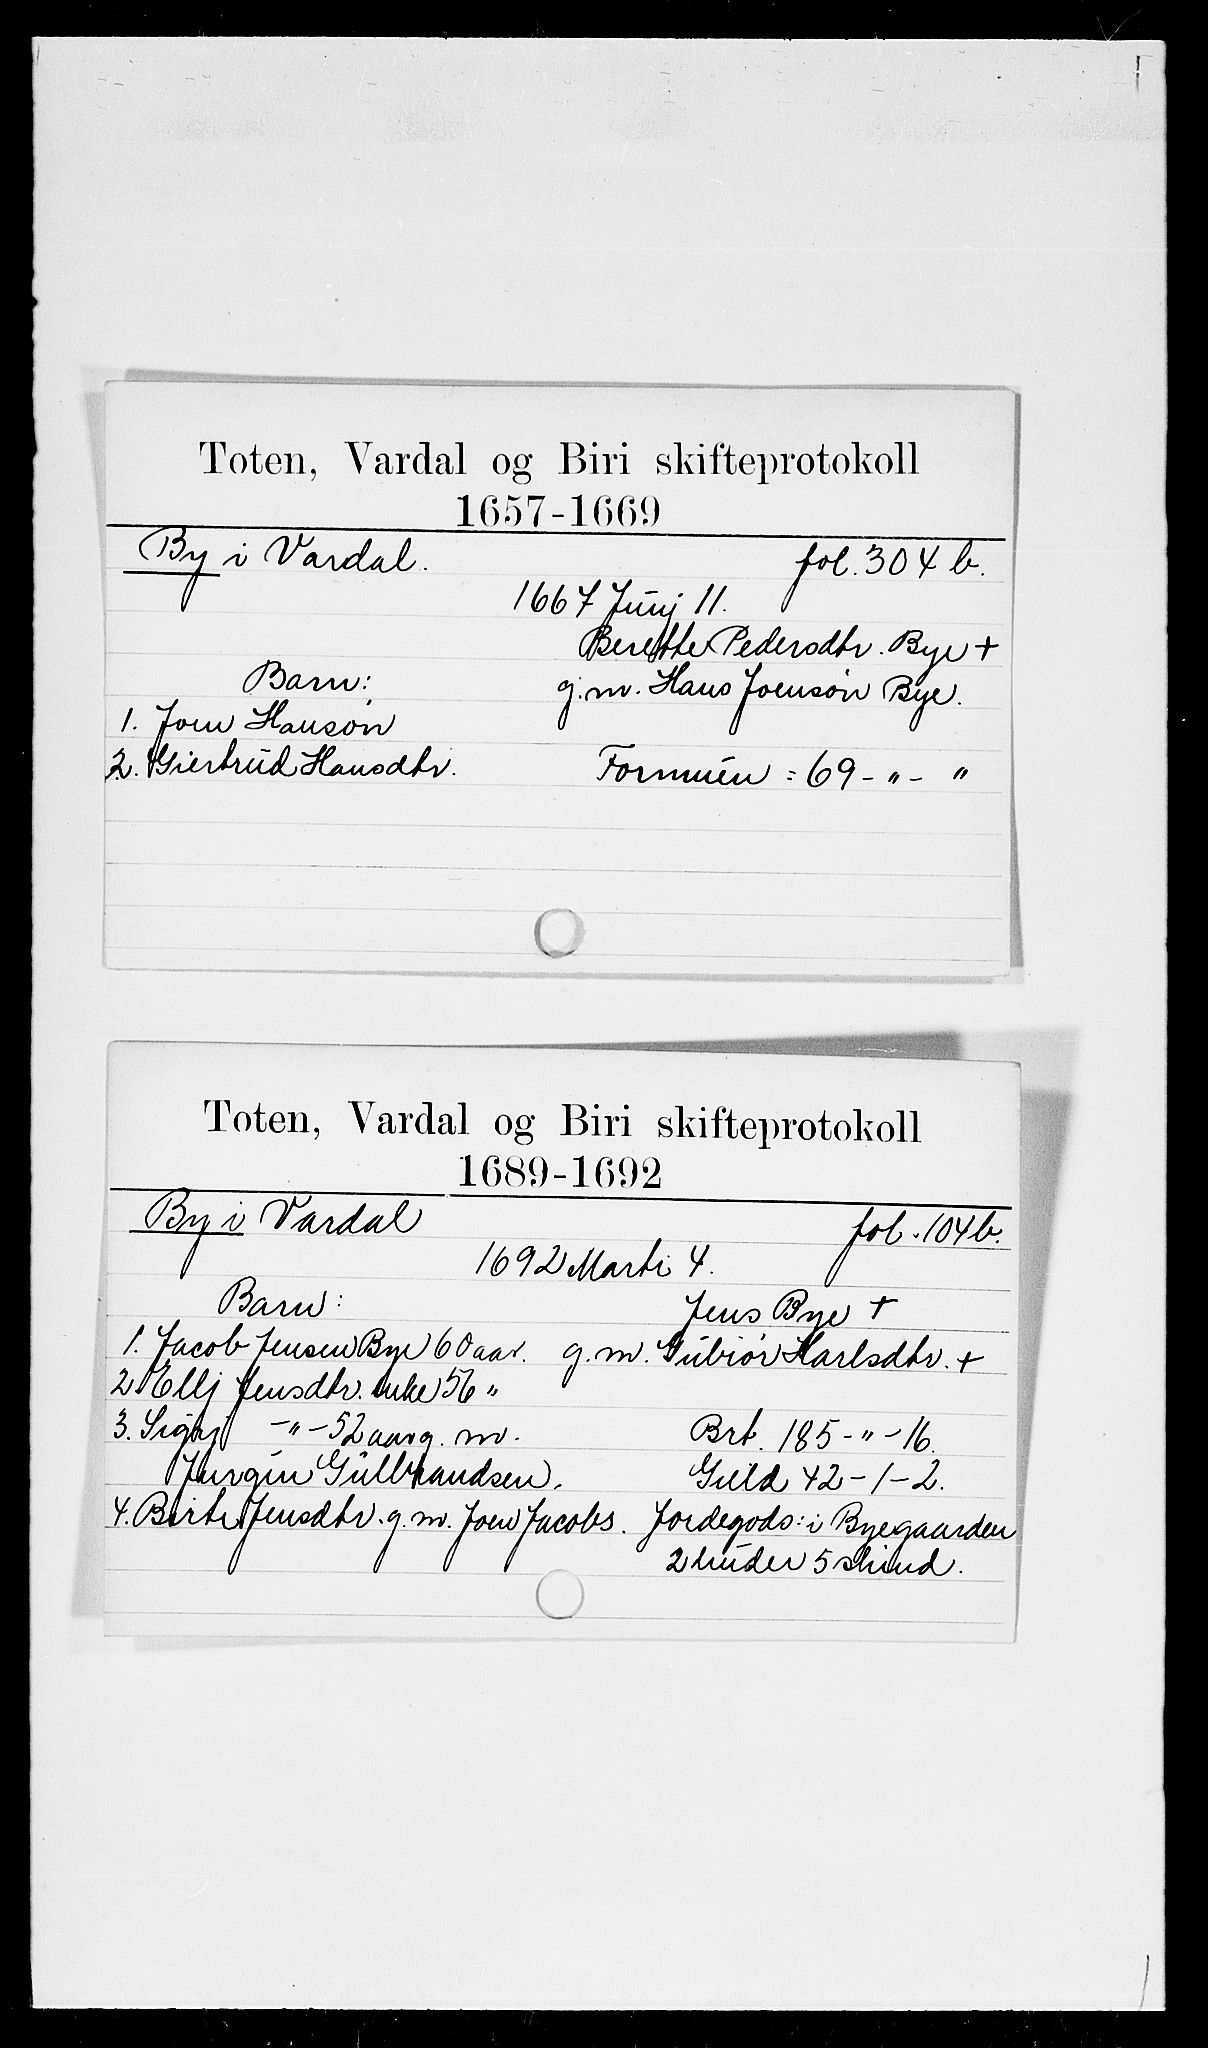 Toten, Vardal og Biri skifteprotokoll
1657-1669
By i Vardal. fol. 304 b.
1667 Junj 11.
Berette Pedersdtr. Bye +
Barn: g.m. Hans Joensøn Bye.
1. Joen Hansøn
2. Giertrud Hansdtr. Formuen = 69 - " - "
Toten, Vardal og Biri skifteprotokoll
1689-1692
By i Vardal fol. 104 b.
1692 Marti 4.
Barn: Jens Bye +
1. Jacob Jensen Bye 60 aar. g.m. Gubiør Harlsdtr. +
2. Ellj Jensdtr. enke 56 "
3. Sigrj - " - 52 aar g. m. Brt. 185 - " - 16.
Jurgin Gulbrandsen. Gield 42 - 1 - 2.
4. Birte Jensdtr. g.m. Joen Jacobs. Jordegods: i Byegaarden
2 huder 5 skind.